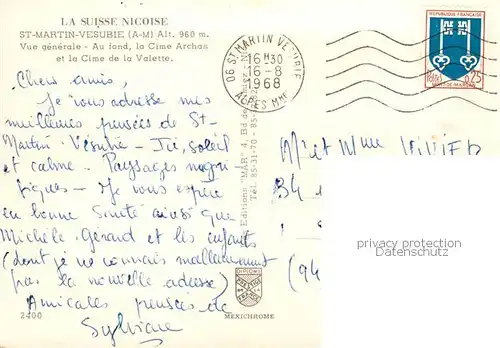 LA SUISSE NICOISE
ST-MARTIN-VESUBIE (A-M) Alt. 960 m.
Vue générale - Au fond, la Cime Archas
et la Cime de la Valette.
06 ST MARTIN VESUBIE
16 H30
16-8
1968
ALPES MMES
REPUBLIQUE FRANÇAISE
0,25
MONT DE MARSAN
Chers amis,
Je vous adresse mes
meilleures pensées de St-
Martin-Vésubie - Ici, soleil
et calme - Paysages magni-
fiques - Je vous espère
en bonne santé ainsi que
Michèle, Gérard et les enfants
(dont je ne connais malheureusement
pas la nouvelle adresse)
Amicales pensées de
Sylviane
Editions "MAR" 4, Bd de
Tél. 85-31-70 - 85-
Mr et Mme
34
(94
privacy protection
watermark
DIPLOME
PRESTIGE
FRANCE
2400
MEXICHROME